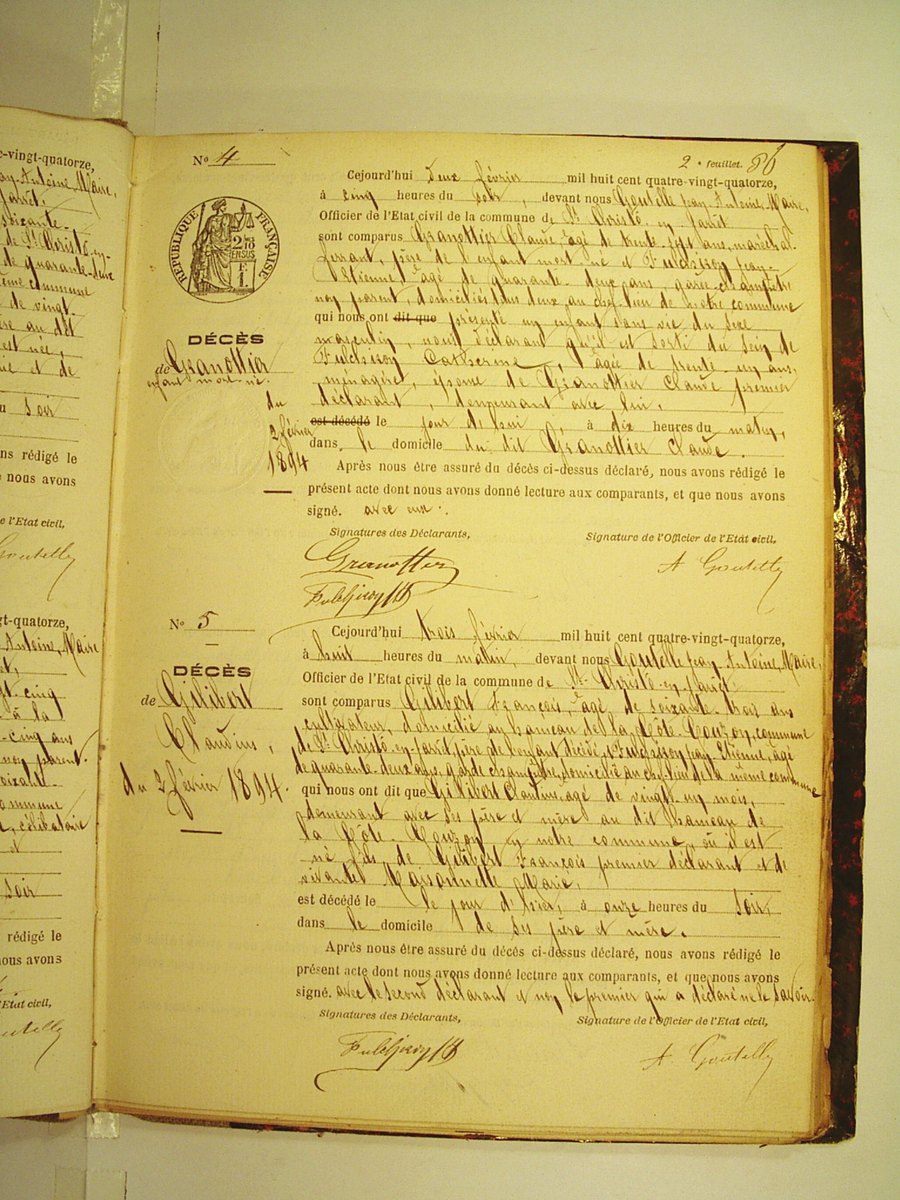 e-vingt-quatorze,
ay-Antoine, Maire,
Jarrêt.
soixante-
de St Christô-en-
de quarante-deux
ême commune
de vingt-
ère au dit
est née,
ie et de
u soir
ns rédigé le
e nous avons
e l'Etat civil,
Goutelly
gt-quatorze,
Antoine, Maire
gt-cinq
à la
-cinq ans
non parent.
soixante
commune
, célibataire
et
soir
rédigé le
ous avons
'Etat civil,
utelly
No 4
2e feuillet. 86
Cejourd'hui deux février mil huit cent quatre-vingt-quatorze,
à cinq heures du soir, devant nous Goutelle Jean-Antoine, Maire,
Officier de l'Etat civil de la commune de St Christô-en-Jarêt
sont comparus Granottier Claude, âgé de trente-sept ans, maréchal
ferrant, père de l'enfant mort-né et Fulchiron Jean-
Etienne, âgé de quarante-deux ans, garde-champêtre
non parent, domiciliés tous deux au chef-lieu de notre commune
qui nous ont dit que présenté un enfant sans vie du sexe
masculin, nous déclarant qu'il est sorti du sein de
Fulchiron Catherine, âgée de trente-un ans,
ménagère, épouse de Granottier Claude premier
déclarant, demeurant avec lui,
est décédé le jour d'hui, à dix heures du matin,
dans le domicile du dit Granottier Claude.
Après nous être assuré du décès ci-dessus déclaré, nous avons rédigé le
présent acte dont nous avons donné lecture aux comparants, et que nous avons
signé. avec eux.
Signatures des Déclarants, Signature de l'Officier de l'Etat civil,
Granottier A Goutelly
REPUBLIQUE FRANÇAISE
DÉCÈS
de Granottier
enfant mort-né.
du
2 février
1894
No 5
Cejourd'hui trois février mil huit cent quatre-vingt-quatorze,
à huit heures du matin, devant nous Goutelle Jean-Antoine, Maire,
Officier de l'Etat civil de la commune de St-Christô-en-Jarêt
sont comparus Gilibert François, âgé de soixante-trois ans
cultivateur, domicilié au hameau de la Côte-Couzon, commune
de St-Christô-en-Jarêt père de l'enfant décédé, et Fulchiron Jean-Etienne, âgé
de quarante-deux ans, garde champêtre, domicilié au chef-lieu de la même commune
qui nous ont dit que Gilibert Claudius, âgé de vingt-un mois,
demeurant avec ses père et mère au dit hameau de
la Côte-Couzon en notre commune, où il est
né, fils de Gilibert François premier déclarant et de
vivante Maisonnette Marie,
est décédé le jour d'hier, à onze heures du soir,
dans le domicile de ses père et mère.
Après nous être assuré du décès ci-dessus déclaré, nous avons rédigé le
présent acte dont nous avons donné lecture aux comparants, et que nous avons
signé. avec le second déclarant et non le premier qui a déclaré ne le savoir.
Signatures des Déclarants, Signature de l'Officier de l'Etat civil,
A. Goutelly
DÉCÈS
de Gilibert
Claudius,
du 2 février 1894.